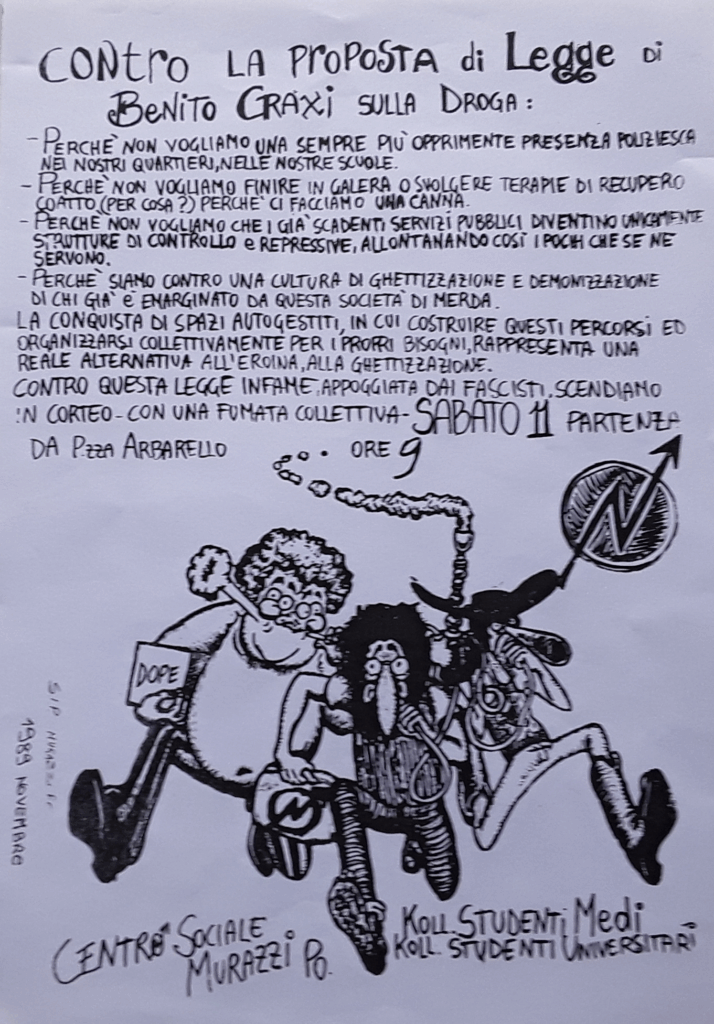 CONTRO LA PROPOSTA di Legge DI
BENITO CRAXI SULLA DROGA:
- PERCHÈ NON VOGLIAMO UNA SEMPRE PIÙ OPPRIMENTE PRESENZA POLIZIESCA
NEI NOSTRI QUARTIERI, NELLE NOSTRE SCUOLE.
- PERCHÈ NON VOGLIAMO FINIRE IN GALERA O SVOLGERE TERAPIE DI RECUPERO
COATTO, (PER COSA?) PERCHÈ CI FACCIAMO UNA CANNA.
- PERCHÈ NON VOGLIAMO CHE I GIÀ SCADENTI SERVIZI PUBBLICI DIVENTINO UNICAMENTE
STRUTTURE DI CONTROLLO e REPRESSIVE, ALLONTANANDO COSÌ I POCHI CHE SE NE
SERVONO.
- PERCHÈ SIAMO CONTRO UNA CULTURA DI GHETTIZZAZIONE E DEMONIZZAZIONE
DI CHI GIÀ È EMARGINATO DA QUESTA SOCIETÀ DI MERDA.
LA CONQUISTA DI SPAZI AUTOGESTITI, IN CUI COSTRUIRE QUESTI PERCORSI ED
ORGANIZZARSI COLLETTIVAMENTE PER I PROPRI BISOGNI, RAPPRESENTA UNA
REALE ALTERNATIVA ALL'EROINA, ALLA GHETTIZZAZIONE.
CONTRO QUESTA LEGGE INFAME, APPOGGIATA DAI FASCISTI, SCENDIAMO
IN CORTEO - CON UNA FUMATA COLLETTIVA - SABATO 11 PARTENZA
DA P.zza ARBARELLO ORE 9
DOPE
1989 NOVEMBRE
CENTRO SOCIALE
MURAZZI PO.
KOLL. STUDENTI Medi
KOLL. STUDENTI UNIVERSITARI